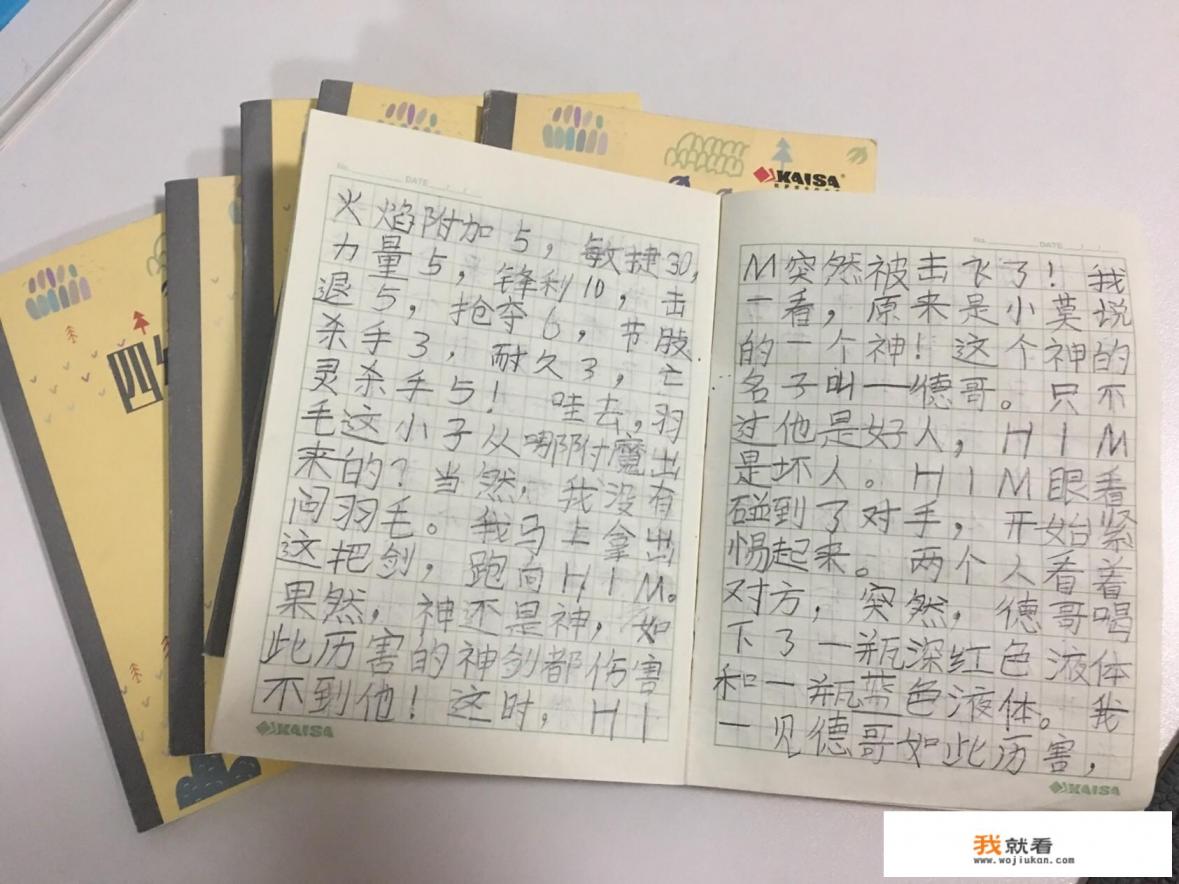 KAISA
四
No. DATE / /
火焰附加5，敏捷30，
力量5，锋利10，击
退5，抢夺6，节肢
杀手3，耐久3，亡
灵杀手5！哇去，羽
毛这小子从哪附魔出
来的？当然，我没有
问羽毛。我马上拿出
这把剑，跑向HIM。
果然，神还是神，如
此历害的神剑都伤害
不到他！这时，HI
KAISA
No. DATE / /
M突然被击飞了！我
一看，原来是小莫说
的一个神！这个神的
名子叫一德哥。只不
过他是好人，HIM
是坏人。HIM眼看
碰到了对手，开始紧
惕起来。两个人看着
对方，突然，德哥喝
下了一瓶深红色液体
和一瓶蓝色液体。我
一见德哥如此历害，
KAISA
我就看
www.wojiukan.com